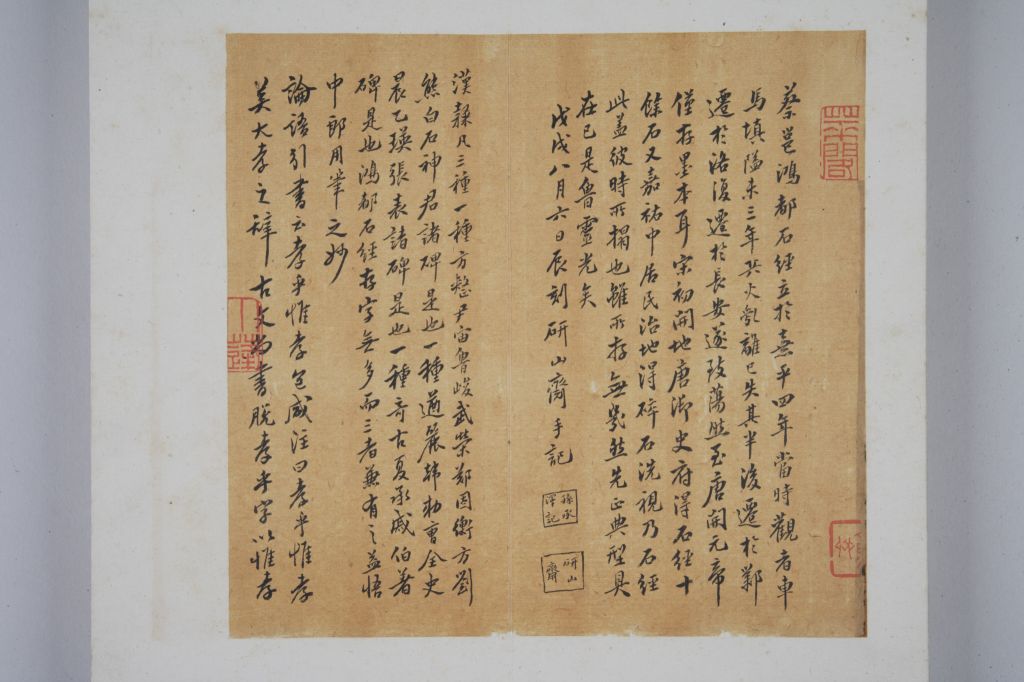 蔡邕鴻都石經立於熹平四年當時觀者車
馬填隘未三年兵火亂離已失其半後遷於鄴
遷於洛復遷於長安遂致蕩然至唐開元帝
僅存墨本耳宋初開地唐御史府得石經十
餘石又嘉祐中居民治地得碎石洗視乃石經
此蓋彼時所搨也雖所存無幾然先正典型具
在已是魯靈光矣
戊戌八月六日辰刻研山齋手記
孫承澤記
研山齋
漢隸凡三種一種方整尹宙魯峻武榮鄭固衡方劉
熊白石神君諸碑是也一種遒麗韓勑曹全史
晨乙瑛張表諸碑是也一種奇古夏承戚伯著
碑是也鴻都石經存字無多而三者兼有之益悟
中郎用筆之妙
論語引書云孝乎惟孝包咸注曰孝乎惟孝
美大孝之辭古文尚書脫孝乎字以惟孝